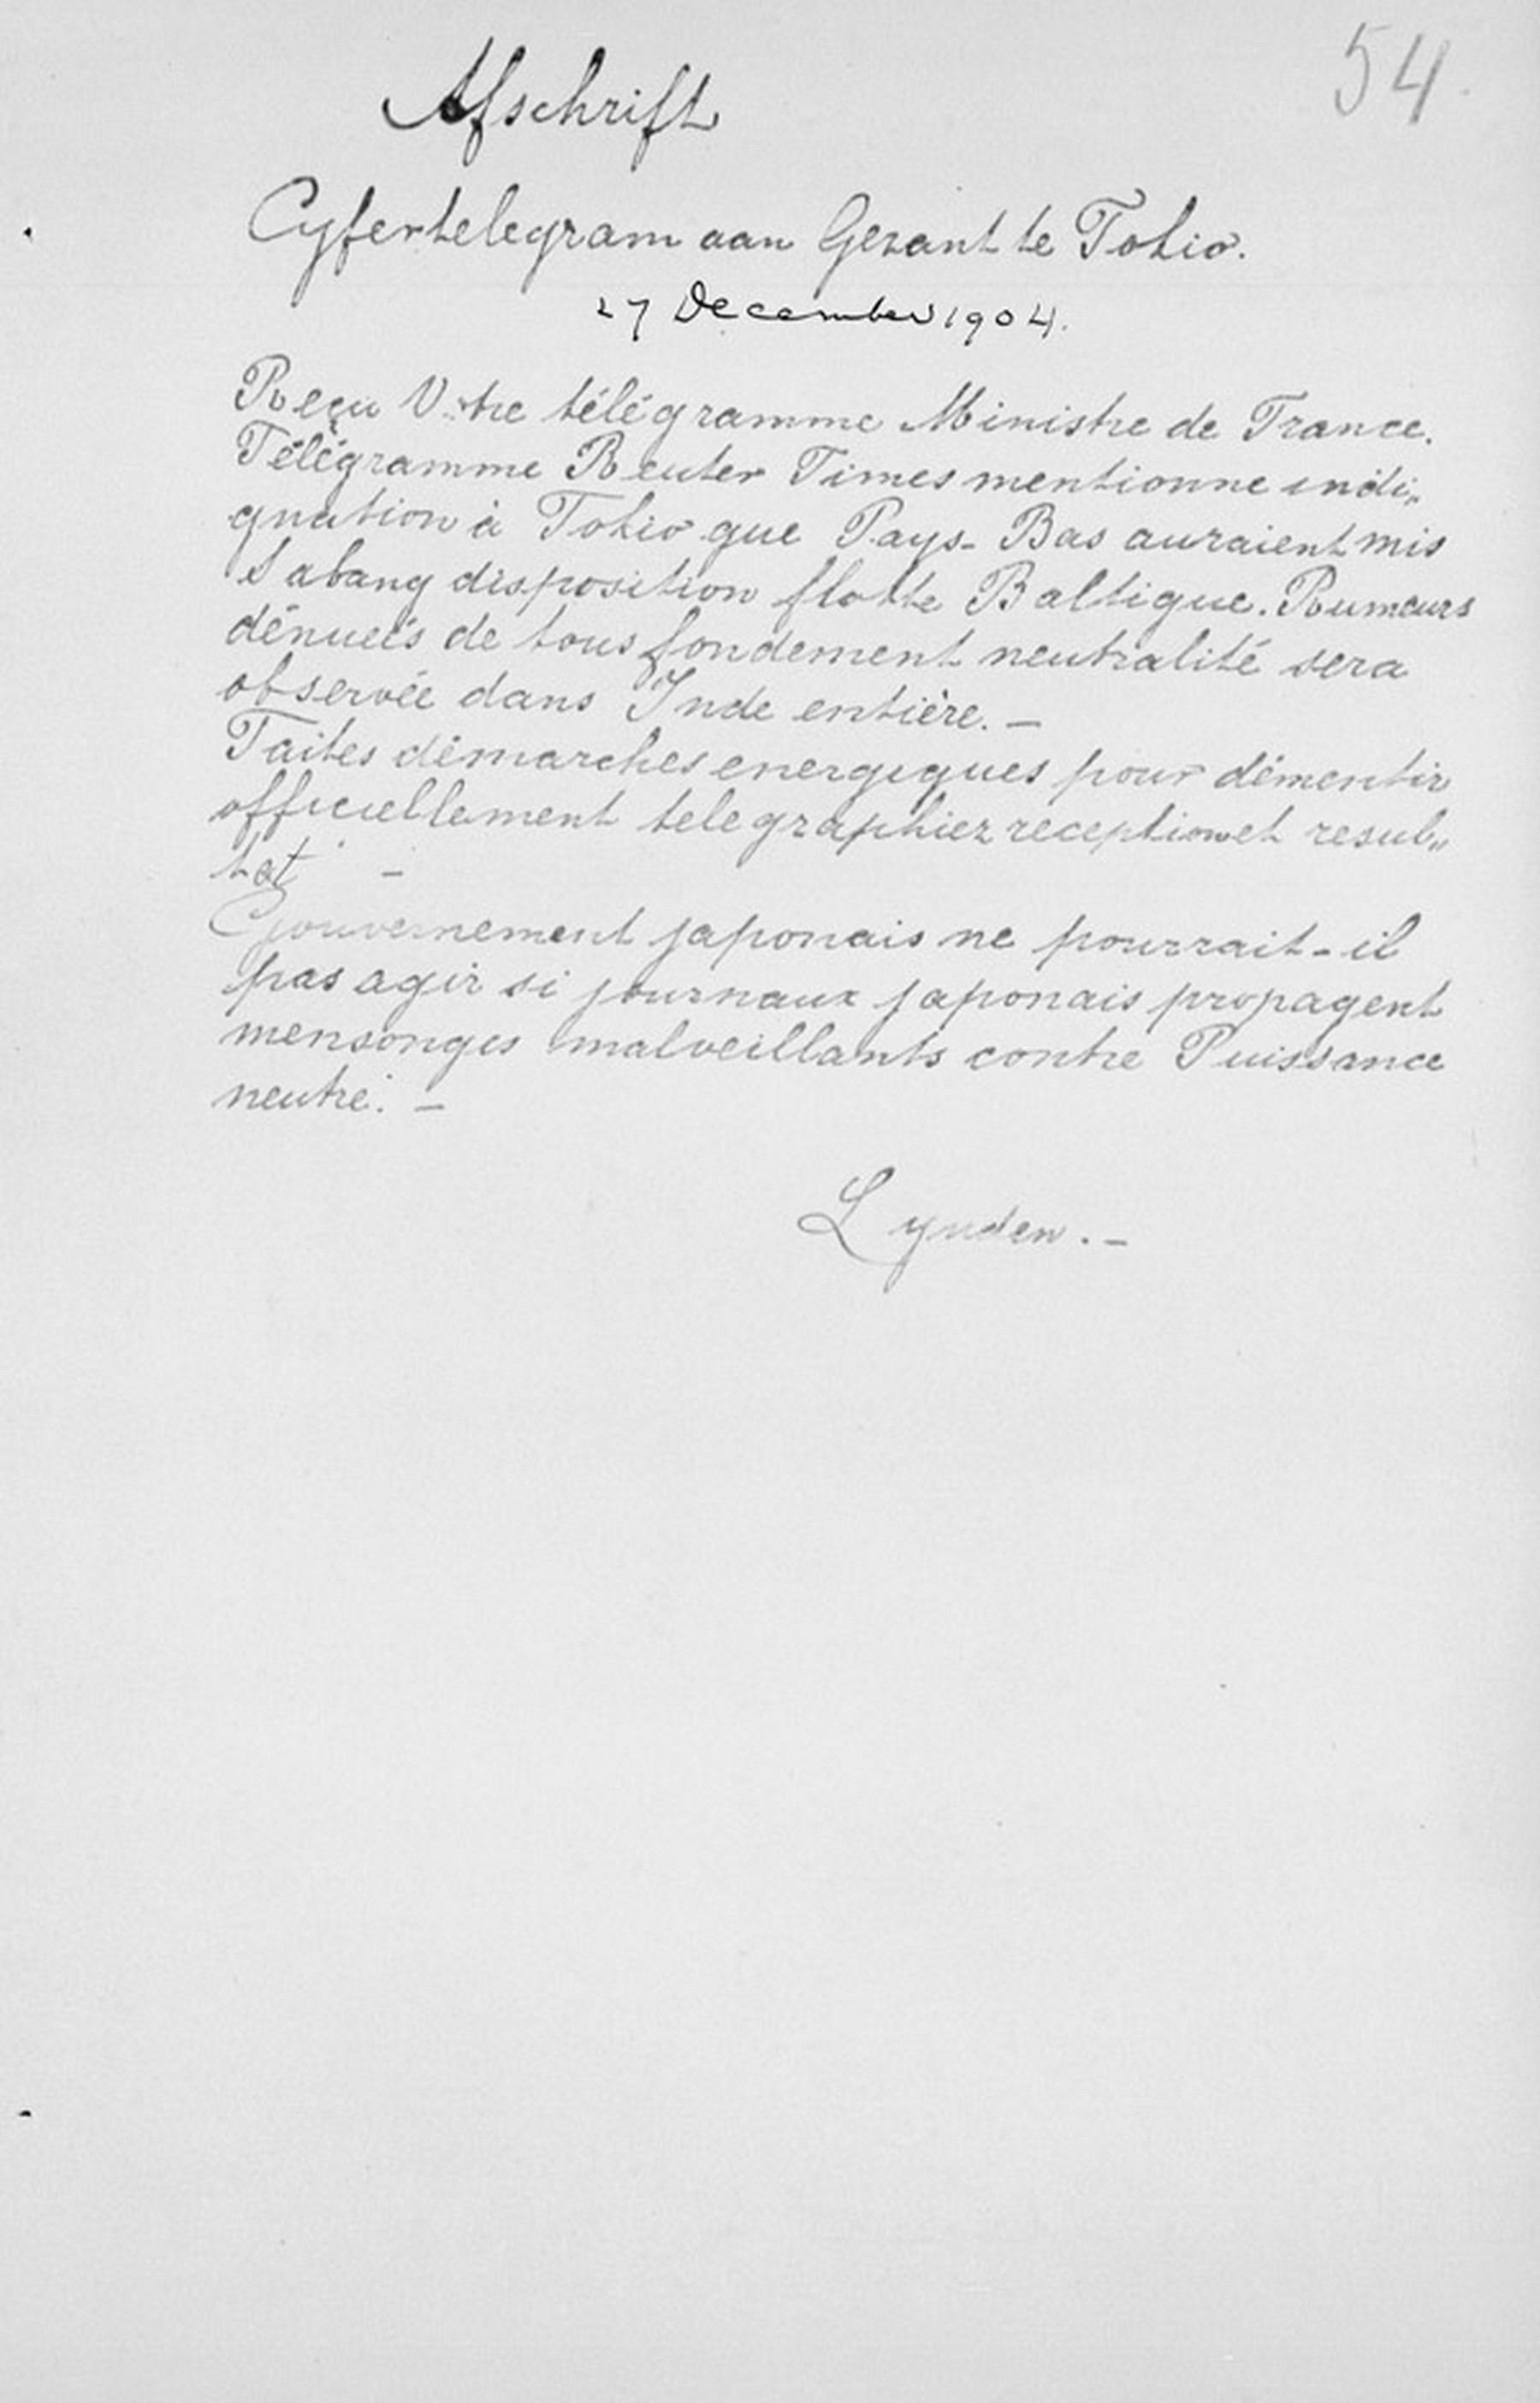 54.
Afschrift
Cyfertelegram aan Gezant te Tokio.
27 December 1904.
Reçu Votre télégramme Ministre de France.
Télégramme Reuter Times mentionne indi„
gnation à Tokio que Pays-Bas auraient mis
Sabang disposition flotte Baltique. Rumeurs
dénuées de tous fondement neutralité sera
observée dans Inde entière. —
Faites démarches energiques pour démentir
officiellement telegraphiez reception et resul„
tat —
Gouvernement japonais ne pourrait-il
pas agir si journaux japonais propagent
mensonges malveillants contre Puissance
neutre. —
Lynden. —